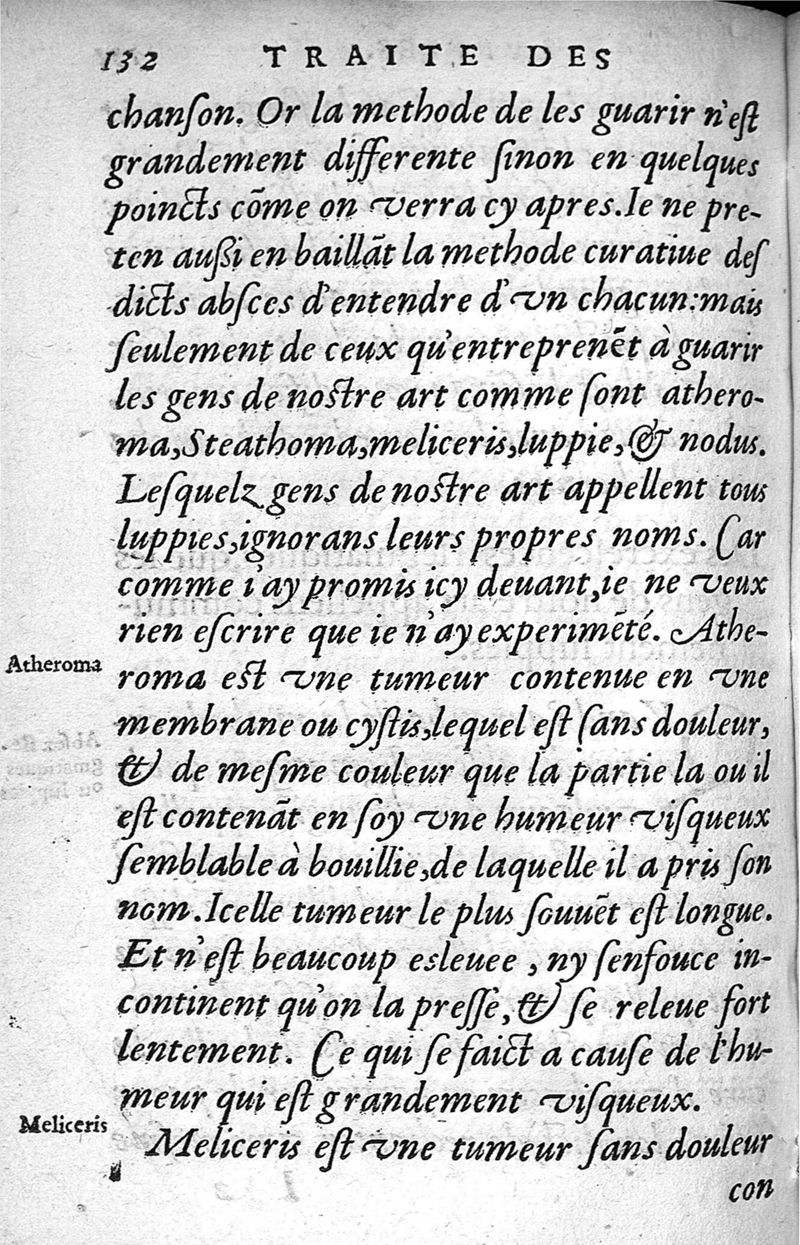 132 TRAITE DES
chanſon. Or la methode de les guarir n'eſt
grandement differente ſinon en quelques
poincts cõme on verra cy apres. Ie ne pre-
ten auſſi en baillãt la methode curatiue deſ
dicts abſces d'entendre d'vn chacun: mais
ſeulement de ceux qu'entreprenẽt à guarir
les gens de noſtre art comme ſont athero-
ma, Steathoma, meliceris, luppie, & nodus.
Leſquelz gens de noſtre art appellent tous
luppies, ignorans leurs propres noms. Car
comme i'ay promis icy deuant, ie ne veux
rien eſcrire que ie n'ay experimẽté. Athe-
Atheroma
roma eſt vne tumeur contenue en vne
membrane ou cyſtis, lequel eſt ſans douleur,
& de meſme couleur que la partie la ou il
eſt contenãt en ſoy vne humeur viſqueux
ſemblable à bouillie, de laquelle il a pris ſon
nom. Icelle tumeur le plus ſouuẽt eſt longue.
Et n'eſt beaucoup esleuee, ny ſenfouce in-
continent qu'on la preſſe, & ſe releue fort
lentement. Ce qui ſe faict a cauſe de l'hu-
meur qui eſt grandement viſqueux.
Meliceris
Meliceris eſt vne tumeur ſans douleur
con